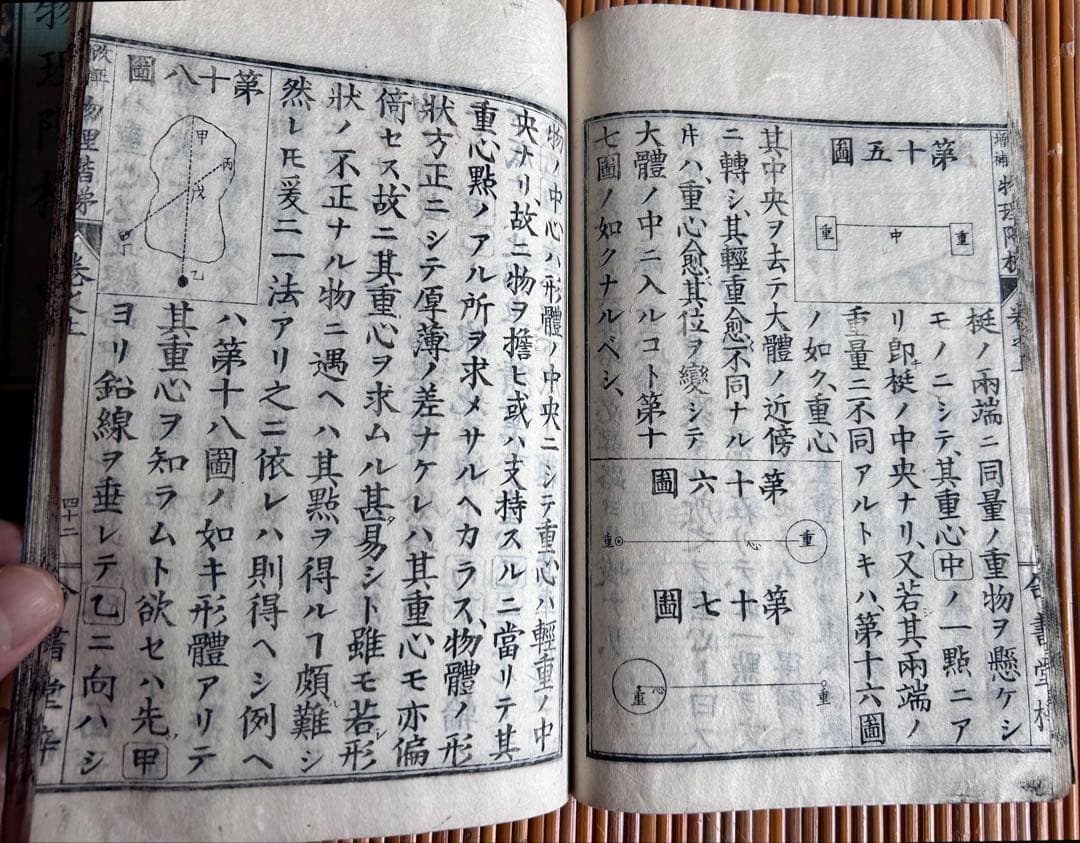 増補物理階梯
卷之上
第十五圖
重
中
重
梃ノ兩端ニ同量ノ重物ヲ懸ケシ
モノニシテ、其重心中ノ一點ニア
リ卽梃ノ中央ナリ、又若其兩端ノ
重量ニ不同アルトキハ、第十六圖
ノ如ク、重心
其中央ヲ去テ大體ノ近傍
ニ轉シ、其輕重愈不同ナル
トキハ、重心愈其位ヲ變シテ
大體ノ中ニ入ルコト第十
七圖ノ如クナルベシ、
第十六圖
重
心
重
第十七圖
重
心
重
物ノ中心ハ形體ノ中央ニシテ重心ハ輕重ノ中
央ナリ、故ニ物ヲ擔ヒ或ハ支持スルニ當リテ其
重心點ノアル所ヲ求メサルヘカラス、物體ノ形
狀方正ニシテ厚薄ノ差ナケレハ其重心モ亦偏
倚セス、故ニ其重心ヲ求ムル甚易シト雖モ若形
狀ノ不正ナル物ニ遇ヘハ其點ヲ得ルヿ頗難シ
然レ𪜈爰ニ一法アリ之ニ依レハ則得ヘシ例ヘ
ハ第十八圖ノ如キ形體アリテ
其重心ヲ知ラムト欲セハ先甲
ヨリ鉛線ヲ垂レテ乙ニ向ハシ
第十八圖
甲
丙
戊
丁
乙
物理階梯
卷之上
四十二
書堂梓